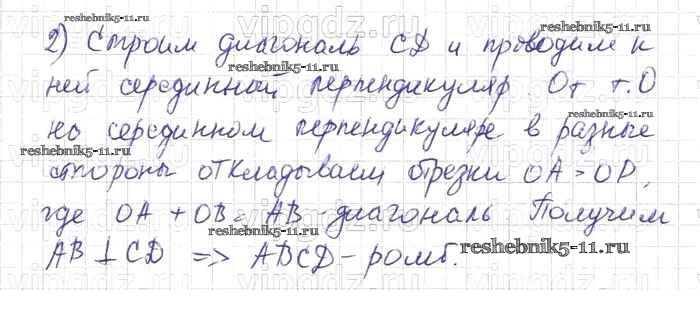 2) Строим диагональ CD и проводим к
ней серединный перпендикуляр. От т.О
на серединном перпендикуляре в разные
стороны откладываем отрезки OA = OD,
где OA + OB = AB - диагональ Получим
AB ⊥ CD => ABCD - ромб.
reshebnik5-11.ru
reshebnik5-11.ru
reshebnik5-11.ru
reshebnik5-11.ru
reshebnik5-11.ru
reshebnik5-11.ru